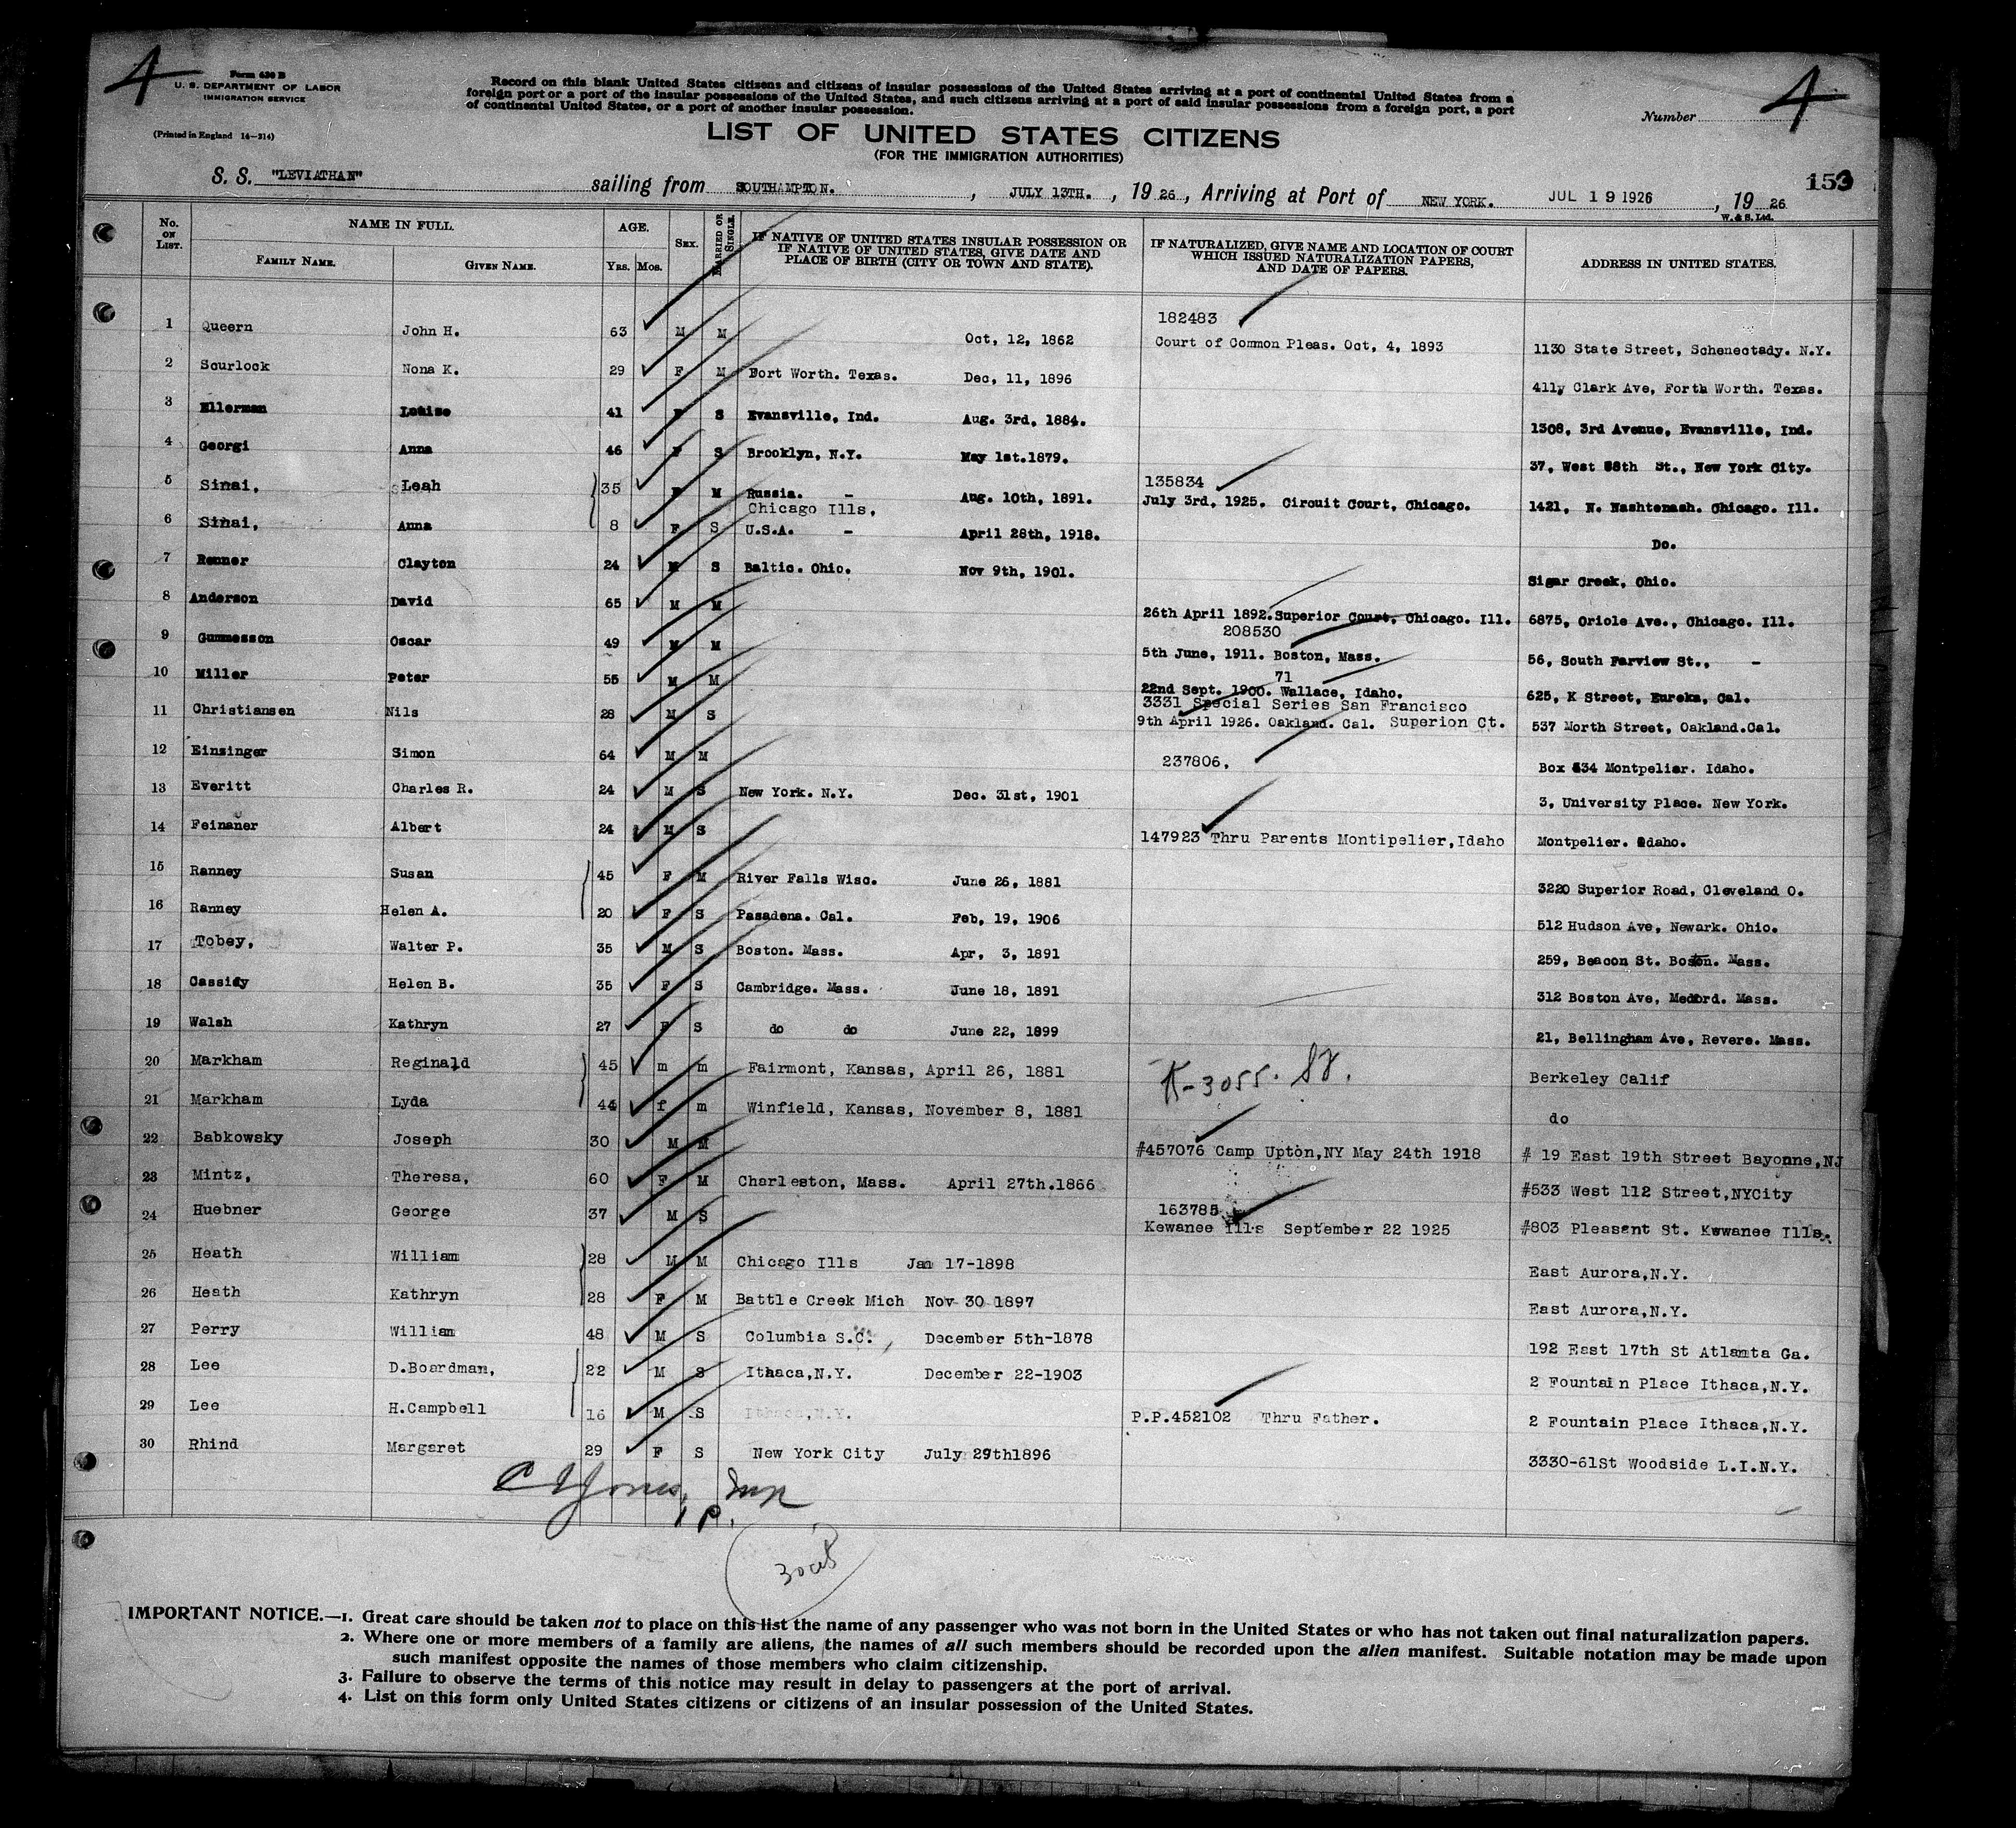 4
Form 630 B
U. S. DEPARTMENT OF LABOR
IMMIGRATION SERVICE
(Printed in England 14—314)
Record on this blank United States citizens and citizens of insular possessions of the United States arriving at a port of continental United States from a
foreign port or a port of the insular possessions of the United States, and such citizens arriving at a port of said insular possessions from a foreign port, a port
of continental United States, or a port of another insular possession.
LIST OF UNITED STATES CITIZENS
(FOR THE IMMIGRATION AUTHORITIES)
Number 4
153
S. S. "LEVIATHAN" sailing from SOUTHAMPTON. , JULY 13TH. , 19 26 , Arriving at Port of NEW YORK. JUL 19 1926 , 19 26
W. & S. Ltd.
No. ON LIST. NAME IN FULL. FAMILY NAME. GIVEN NAME. AGE. YRS. MOS. SEX. MARRIED OR SINGLE. IF NATIVE OF UNITED STATES INSULAR POSSESSION OR IF NATIVE OF UNITED STATES, GIVE DATE AND PLACE OF BIRTH (CITY OR TOWN AND STATE). IF NATURALIZED, GIVE NAME AND LOCATION OF COURT WHICH ISSUED NATURALIZATION PAPERS, AND DATE OF PAPERS. ADDRESS IN UNITED STATES.
1 Queern John H. 63 M M Oct, 12, 1862 182483 Court of Common Pleas. Oct, 4, 1893 1130 State Street, Schenectady. N.Y.
2 Scurlock Nona K. 29 F M Fort Worth. Texas. Dec, 11, 1896 411y Clark Ave, Forth Worth. Texas.
3 Ellerman Louise 41 F S Evansville, Ind. Aug. 3rd, 1884. 1308, 3rd Avenue, Evansville, Ind.
4 Georgi Anna 46 F S Brooklyn, N.Y. May 1st.1879. 37, West 88th St., New York City.
5 Sinai, Leah 35 F M Russia. - Aug. 10th, 1891. 135834 July 3rd, 1925. Circuit Court, Chicago. 1421, N. Washtenash. Chicago. Ill.
6 Sinai, Anna 8 F S Chicago Ills, U.S.A. - April 28th, 1918. Do.
7 Renner Clayton 24 M S Baltic. Ohio. Nov 9th, 1901. Sigar Creek, Ohio.
8 Anderson David 65 M M 26th April 1892.Superior Court, Chicago. Ill. 6875, Oriole Ave., Chicago. Ill.
9 Gunnesson Oscar 49 M M 208530 5th June, 1911. Boston, Mass. 56, South Farview St., -
10 Miller Peter 55 M M 71 22nd Sept. 1900. Wallace, Idaho. 625, K Street, Eureka, Cal.
11 Christiansen Nils 28 M S 3331 Special Series San Francisco 9th April 1926. Oakland. Cal. Superion Ct. 537 Morth Street, Oakland.Cal.
12 Einsinger Simon 64 M M 237806. Box 534 Montpelier. Idaho.
13 Everitt Charles R. 24 M S New York. N.Y. Dec. 31st, 1901 3, University Place. New York.
14 Feinaner Albert 24 M S 147923 Thru Parents Montipelier,Idaho Montpelier. Idaho.
15 Ranney Susan 45 F M River Falls Wisc. June 26, 1881 3220 Superior Road, Cleveland O.
16 Ranney Helen A. 20 F S Pasadena. Cal. Feb, 19, 1906 512 Hudson Ave, Newark. Ohio.
17 Tobey, Walter P. 35 M S Boston. Mass. Apr, 3, 1891 259, Beacon St. Boston. Mass.
18 Cassidy Helen B. 35 F S Cambridge. Mass. June 18, 1891 312 Boston Ave, Medford. Mass.
19 Walsh Kathryn 27 F S do do June 22, 1899 21, Bellingham Ave, Revere. Mass.
20 Markham Reginald 45 m m Fairmont, Kansas, April 26, 1881 K-3055. Berkeley Calif
21 Markham Lyda 44 f m Winfield, Kansas, November 8, 1881 do
22 Babkowsky Joseph 30 M M #457076 Camp Upton,NY May 24th 1918 # 19 East 19th Street Bayonne,NJ
23 Mintz, Theresa, 60 F M Charleston, Mass. April 27th.1866 #533 West 112 Street,NYCity
24 Huebner George 37 M S 163785 Kewanee Ills September 22 1925 #803 Pleasant St. Kewanee Ills.
25 Heath William 28 M M Chicago Ills Jan 17-1898 East Aurora,N.Y.
26 Heath Kathryn 28 F M Battle Creek Mich Nov 30 1897 East Aurora,N.Y.
27 Perry William 48 M S Columbia S.C. December 5th-1878 192 East 17th St Atlamta Ga.
28 Lee D.Boardman, 22 M S Ithaca,N.Y. December 22-1903 2 Fountain Place Ithaca,N.Y.
29 Lee H.Campbell 16 M S Ithaca,N.Y. P.P.452102 Thru Father. 2 Fountain Place Ithaca,N.Y.
30 Rhind Margaret 29 F S New York City July 29th1896 3330-61St Woodside L.I.N.Y.
IMPORTANT NOTICE.—1. Great care should be taken not to place on this list the name of any passenger who was not born in the United States or who has not taken out final naturalization papers.
2. Where one or more members of a family are aliens, the names of all such members should be recorded upon the alien manifest. Suitable notation may be made upon
such manifest opposite the names of those members who claim citizenship.
3. Failure to observe the terms of this notice may result in delay to passengers at the port of arrival.
4. List on this form only United States citizens or citizens of an insular possession of the United States.